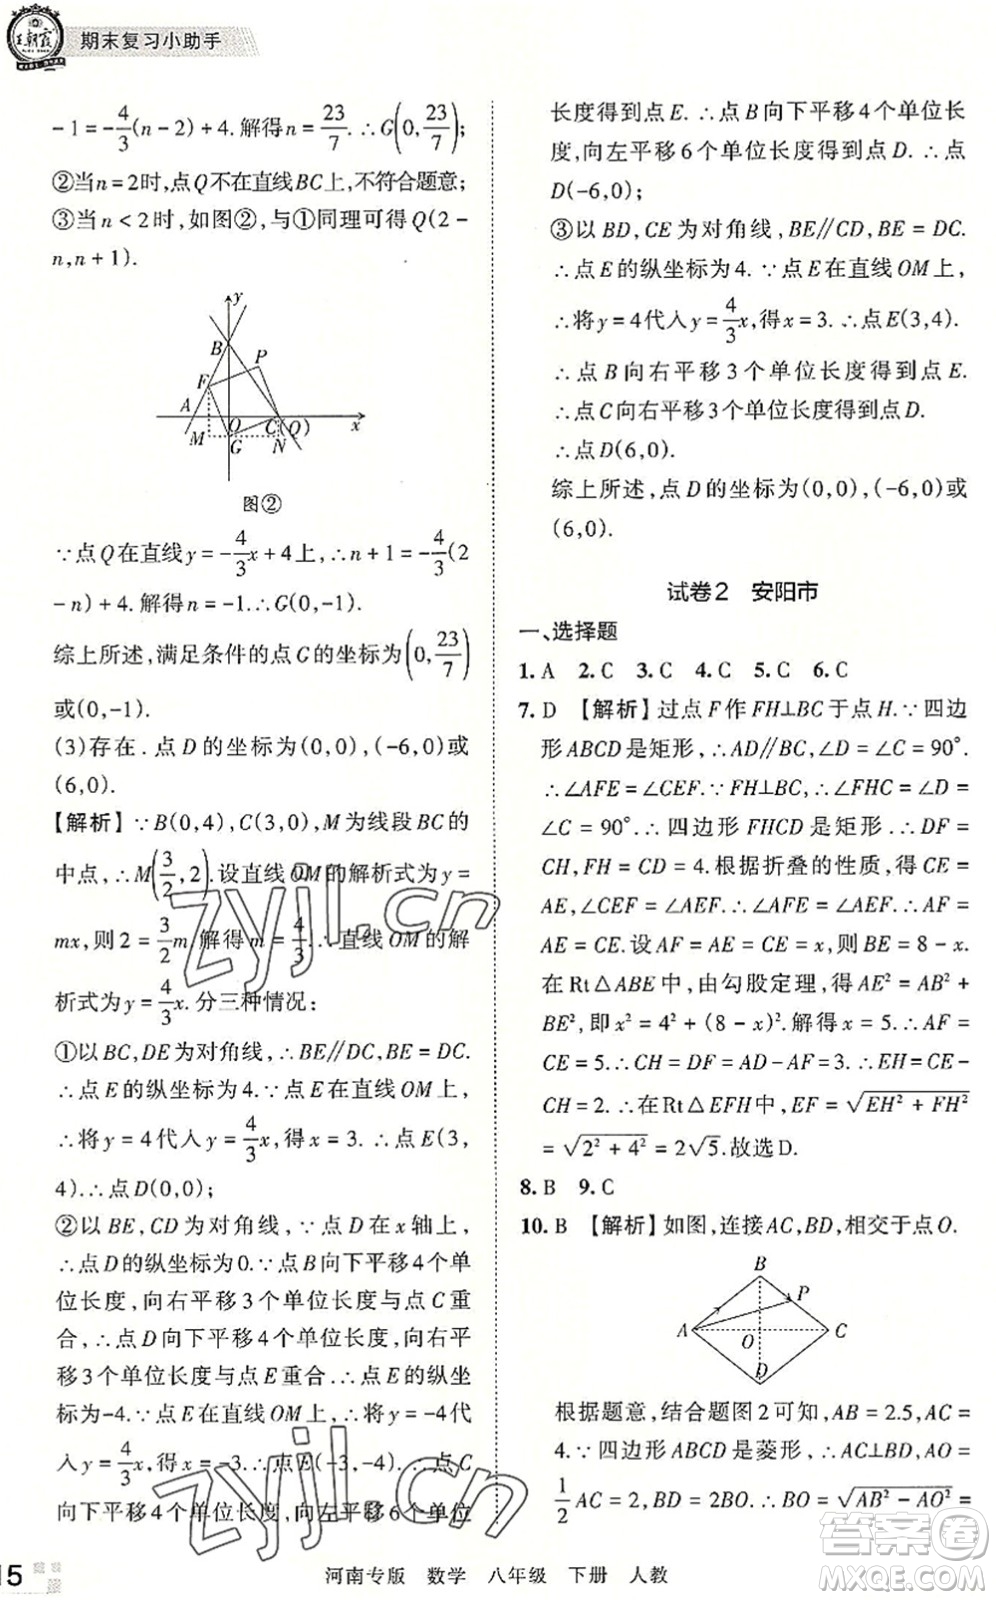 王朝霞
期末复习小助手
-1=-4/3(n-2)+4.解得n=23/7.∴G(0,23/7);
②当n=2时,点Q不在直线BC上,不符合题意;
③当n<2时,如图②,与①同理可得Q(2-
n,n+1).
y
B
P
F
A
O
C(Q)
x
M
G
N
图②
∵点Q在直线y=-4/3x+4上,∴n+1=-4/3(2
-n)+4.解得n=-1.∴G(0,-1).
综上所述,满足条件的点G的坐标为(0,23/7)
或(0,-1).
(3)存在.点D的坐标为(0,0),(-6,0)或
(6,0).
【解析】∵B(0,4),C(3,0),M为线段BC的
中点,∴M(3/2,2).设直线OM的解析式为y=
mx,则2=3/2m.解得m=4/3.∴直线OM的解
析式为y=4/3x.分三种情况:
①以BC,DE为对角线,∴BE∥DC.
∴点E的纵坐标为4.∵点E在直线OM上,
∴将y=4代入y=4/3x,得x=3.∴点E(3,
4).∴点D(0,0);
②以BE,CD为对角线,∵点D在x轴上,
∴点D的纵坐标为0.∵点B向下平移4个单
位长度,向右平移3个单位长度与点C重
合,∴点D向下平移4个单位长度,向右平
移3个单位长度与点E重合.∴点E的纵坐
标为-4.∵点E在直线OM上,∴将y=-4代
入y=4/3x,得x=-3.∴点E(-3,-4).∴点C
向下平移4个单位长度,向左平移6个单位
长度得到点E.∴点B向下平移4个单位长
度,向左平移6个单位长度得到点D.∴点
D(-6,0);
③以BD,CE为对角线,BE∥CD,BE=DC.
∴点E的纵坐标为4.∵点E在直线OM上,
∴将y=4代入y=4/3x,得x=3.∴点E(3,4).
∴点B向右平移3个单位长度得到点E.
∴点C向右平移3个单位长度得到点D.
∴点D(6,0).
综上所述,点D的坐标为(0,0),(-6,0)或
(6,0).
试卷2 安阳市
一、选择题
1. A 2. C 3. C 4. C 5. C 6. C
7. D 【解析】过点F作FH⊥BC于点H.∵四边
形ABCD是矩形,∴AD∥BC,∠D=∠C=90°.
∴∠AFE=∠CEF.∵FH⊥BC,∴∠FHC=∠D=
∠C=90°.∴四边形FHCD是矩形.∴DF=
CH,FH=CD=4.根据折叠的性质,得CE=
AE,∠CEF=∠AEF.∴∠AFE=∠AEF.∴AF=
AE=CE.设AF=AE=CE=x,则BE=8-x.
在Rt△ABE中,由勾股定理,得AE²=AB²+
BE²,即x²=4²+(8-x)².解得x=5.∴AF=
CE=5.∴CH=DF=AD-AF=3.∴EH=CE-
CH=2.∴在Rt△EFH中,EF=√(EH²+FH²)
=√(2²+4²)=2√5.故选D.
8. B 9. C
10. B 【解析】如图,连接AC,BD,相交于点O.
B
P
A
O
C
D
根据题意,结合题图2可知,AB=2.5,AC=
4.∵四边形ABCD是菱形,∴AC⊥BD,AO=
1/2AC=2,BD=2BO.∴BO=√(AB²-AO²)=
15
河南专版 数学 八年级 下册 人教
zyjl.cn
zyjl.cn
答案圈
MXQE.COM